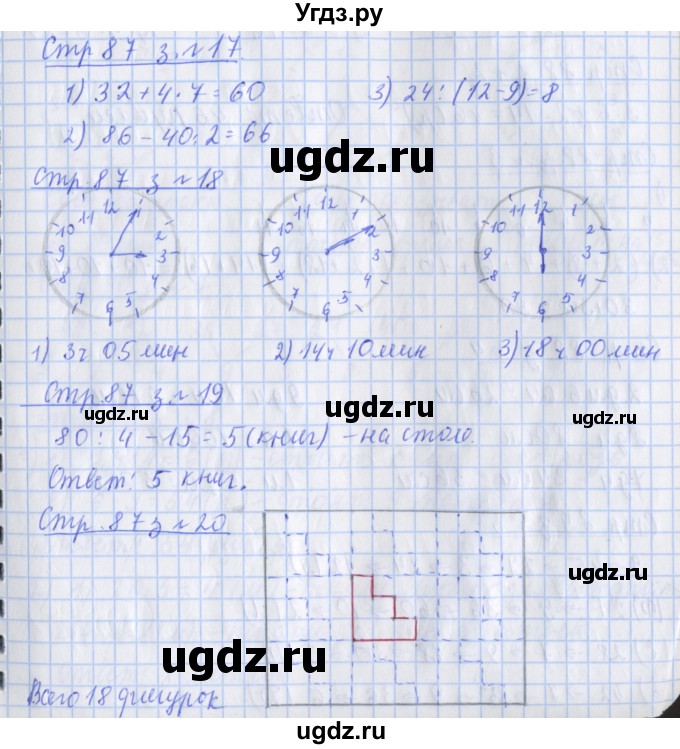 Угдз.ру
Стр 87 з. № 17.
1) 32 + 4 · 7 = 60
3) 24 : (12 - 9) = 8
2) 86 - 40 : 2 = 66
ugdz.ru
ugdz.ru
Стр. 87 з № 18
11 12 1
10 2
9 3
8 4
7 6 5
11 12 1
10 2
9 3
8 4
7 6 5
11 12 1
10 2
9 3
8 4
7 6 5
ugdz.ru
1) 3 ч 05 мин
2) 14 ч 10 мин
3) 18 ч 00 мин
Стр. 87 з. № 19
ugdz.ru
ugdz.ru
ugdz.ru
80 : 4 - 15 = 5 (книг) - на столе.
Ответ: 5 книг.
Стр. 87 з № 20
ugdz.ru
ugdz.ru
ugdz.ru
Всего 18 фигурок
ugdz.ru